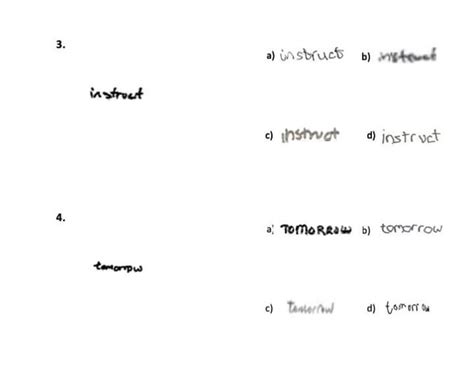 3.
a) instruct b) instruct
instruct
c) instruct d) instruct
4.
a) TOMORROW b) tomorrow
tomorrow
c) Tomorrow d) tomorrow